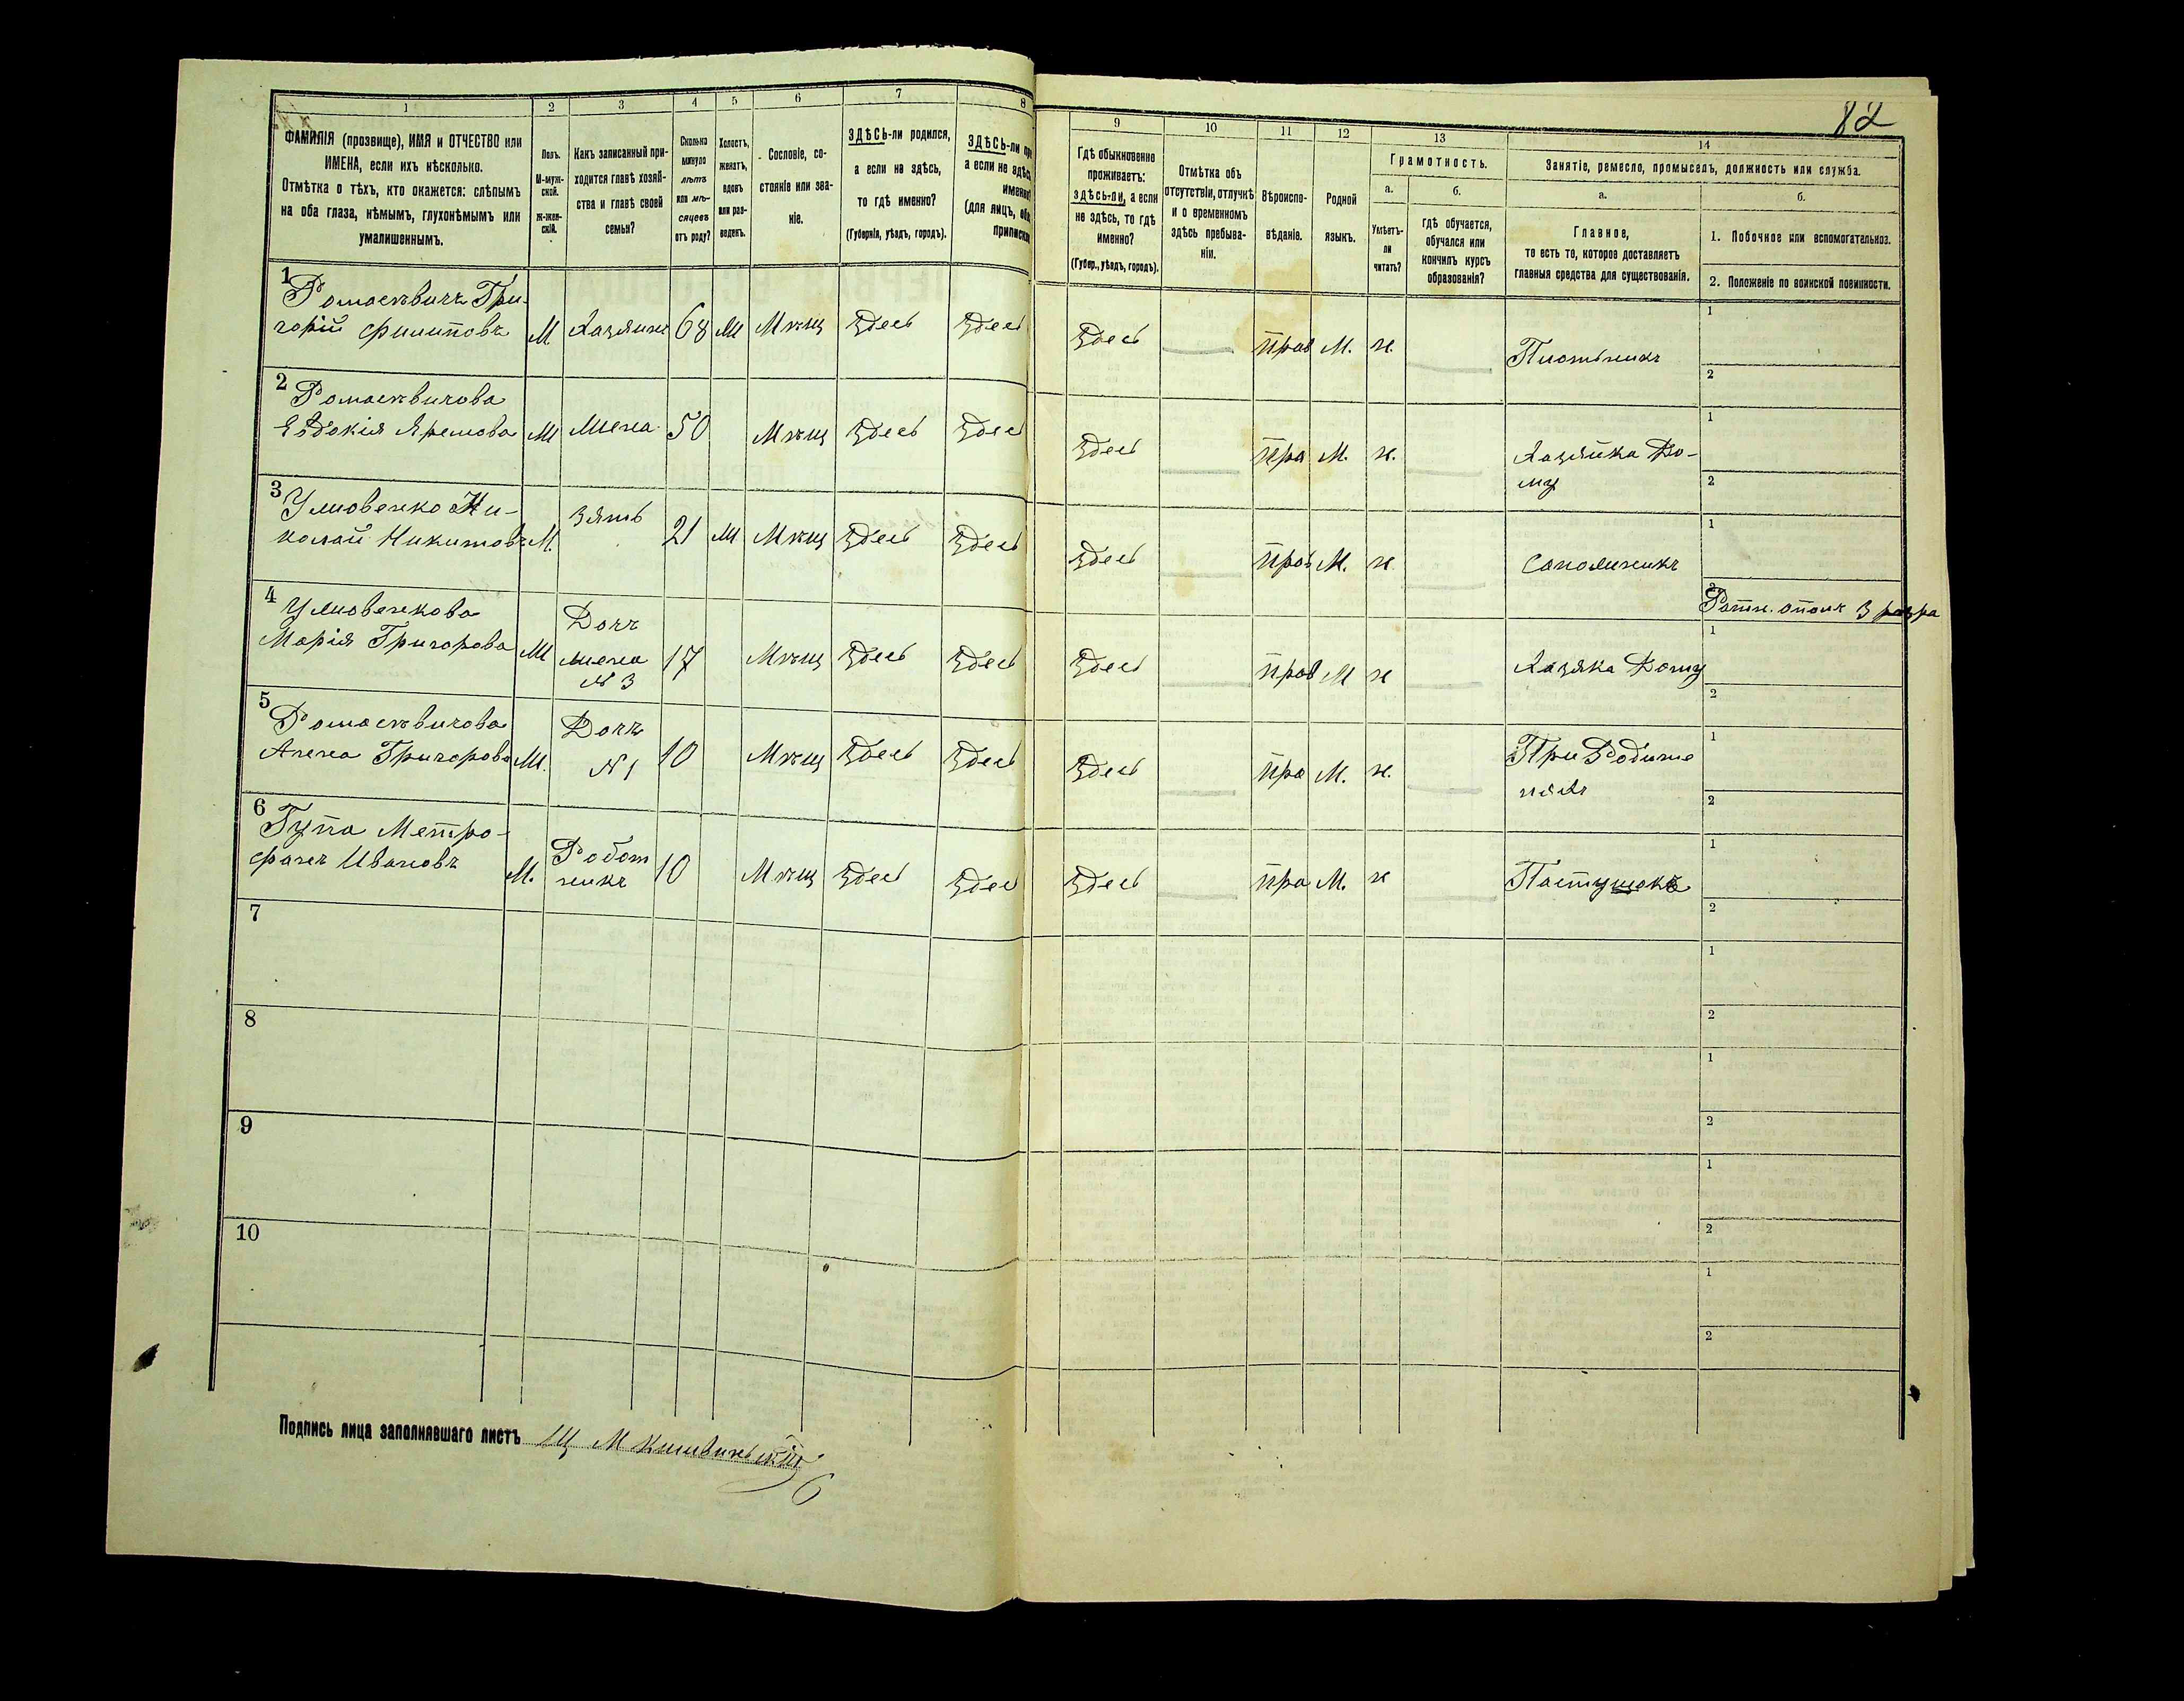 82
1
2
3
4
5
6
7
8
9
10
11
12
13
14
ФАМИЛІЯ (прозвище), ИМЯ и ОТЧЕСТВО или
ИМЕНА, если ихъ нѣсколько.
Отмѣтка о тѣхъ, кто окажется: слѣпымъ
на оба глаза, нѣмымъ, глухонѣмымъ или
умалишеннымъ.
Полъ.
М-муж-
ской.
Ж-жен-
скій.
Какъ записанный при-
ходится главѣ хозяй-
ства и главѣ своей
семьи?
Сколько
минуло
лѣтъ
или мѣ-
сяцевъ
отъ роду?
Холостъ,
женатъ,
вдовъ
или раз-
веденъ.
Сословіе, со-
стояніе или зва-
ніе.
ЗДѢСЬ-ли родился,
а если не здѣсь,
то гдѣ именно?
(Губернія, уѣздъ, городъ).
ЗДѢСЬ-ли
а если не
(для лицъ,
Гдѣ обыкновенно
проживаетъ:
ЗДѢСЬ-ЛИ, а если
не здѣсь, то гдѣ
именно?
(Губер., уѣздъ, городъ).
Отмѣтка объ
отсутствіи, отлучкѣ
и о временномъ
здѣсь пребыва-
ніи.
Вѣроиспо-
вѣданіе.
Родной
языкъ.
Грамотность.
а.
б.
Умѣетъ-
ли
читать?
Гдѣ обучается,
обучался или
кончилъ курсъ
образованія?
Занятіе, ремесло, промыселъ, должность или служба.
а.
б.
Главное,
то есть то, которое доставляетъ
главныя средства для существованія.
1. Побочное или вспомогательное.
2. Положеніе по воинской повинности.
1
Ромаскевичъ Гри-
горій Филиповъ
М
Хазяинъ
68
Ж
Мѣщ
Здесь
Здесь
Здесь
прав
М.
н.
Плотникъ
1
2
2
Ромаскевичова
Евдокія Яремова
Ж
Жена
50
Мѣщ
Здесь
Здесь
Здесь
пра
М.
н.
Хазяйка До-
му
1
2
3
Умовенко Ни-
колай Никитовъ
М.
Зять
21
Ж
Мѣщ
Здесь
Здесь
Здесь
прав
М.
н
Сапожникъ
1
2
4
Умовенкова
Марія Григорова
Ж
Дочь
жена
N 3
17
Мѣщ
Здесь
Здесь
Здесь
прав
М
н
Хазяка Дому
1
2
5
Ромаскевичова
Анна Григорова
Ж.
Дочь
N 1
10
Мѣщ
Здесь
Здесь
Здесь
пра
М.
н.
При Родите
ляхъ
1
2
6
Гупа Метро-
фанъ Ивановъ
М.
Робот
никъ
10
Мѣщ
Здесь
Здесь
Здесь
пра
М.
н
Пастушокъ
1
2
7
1
2
8
1
2
9
1
2
10
1
2
Подпись лица заполнявшаго листъ